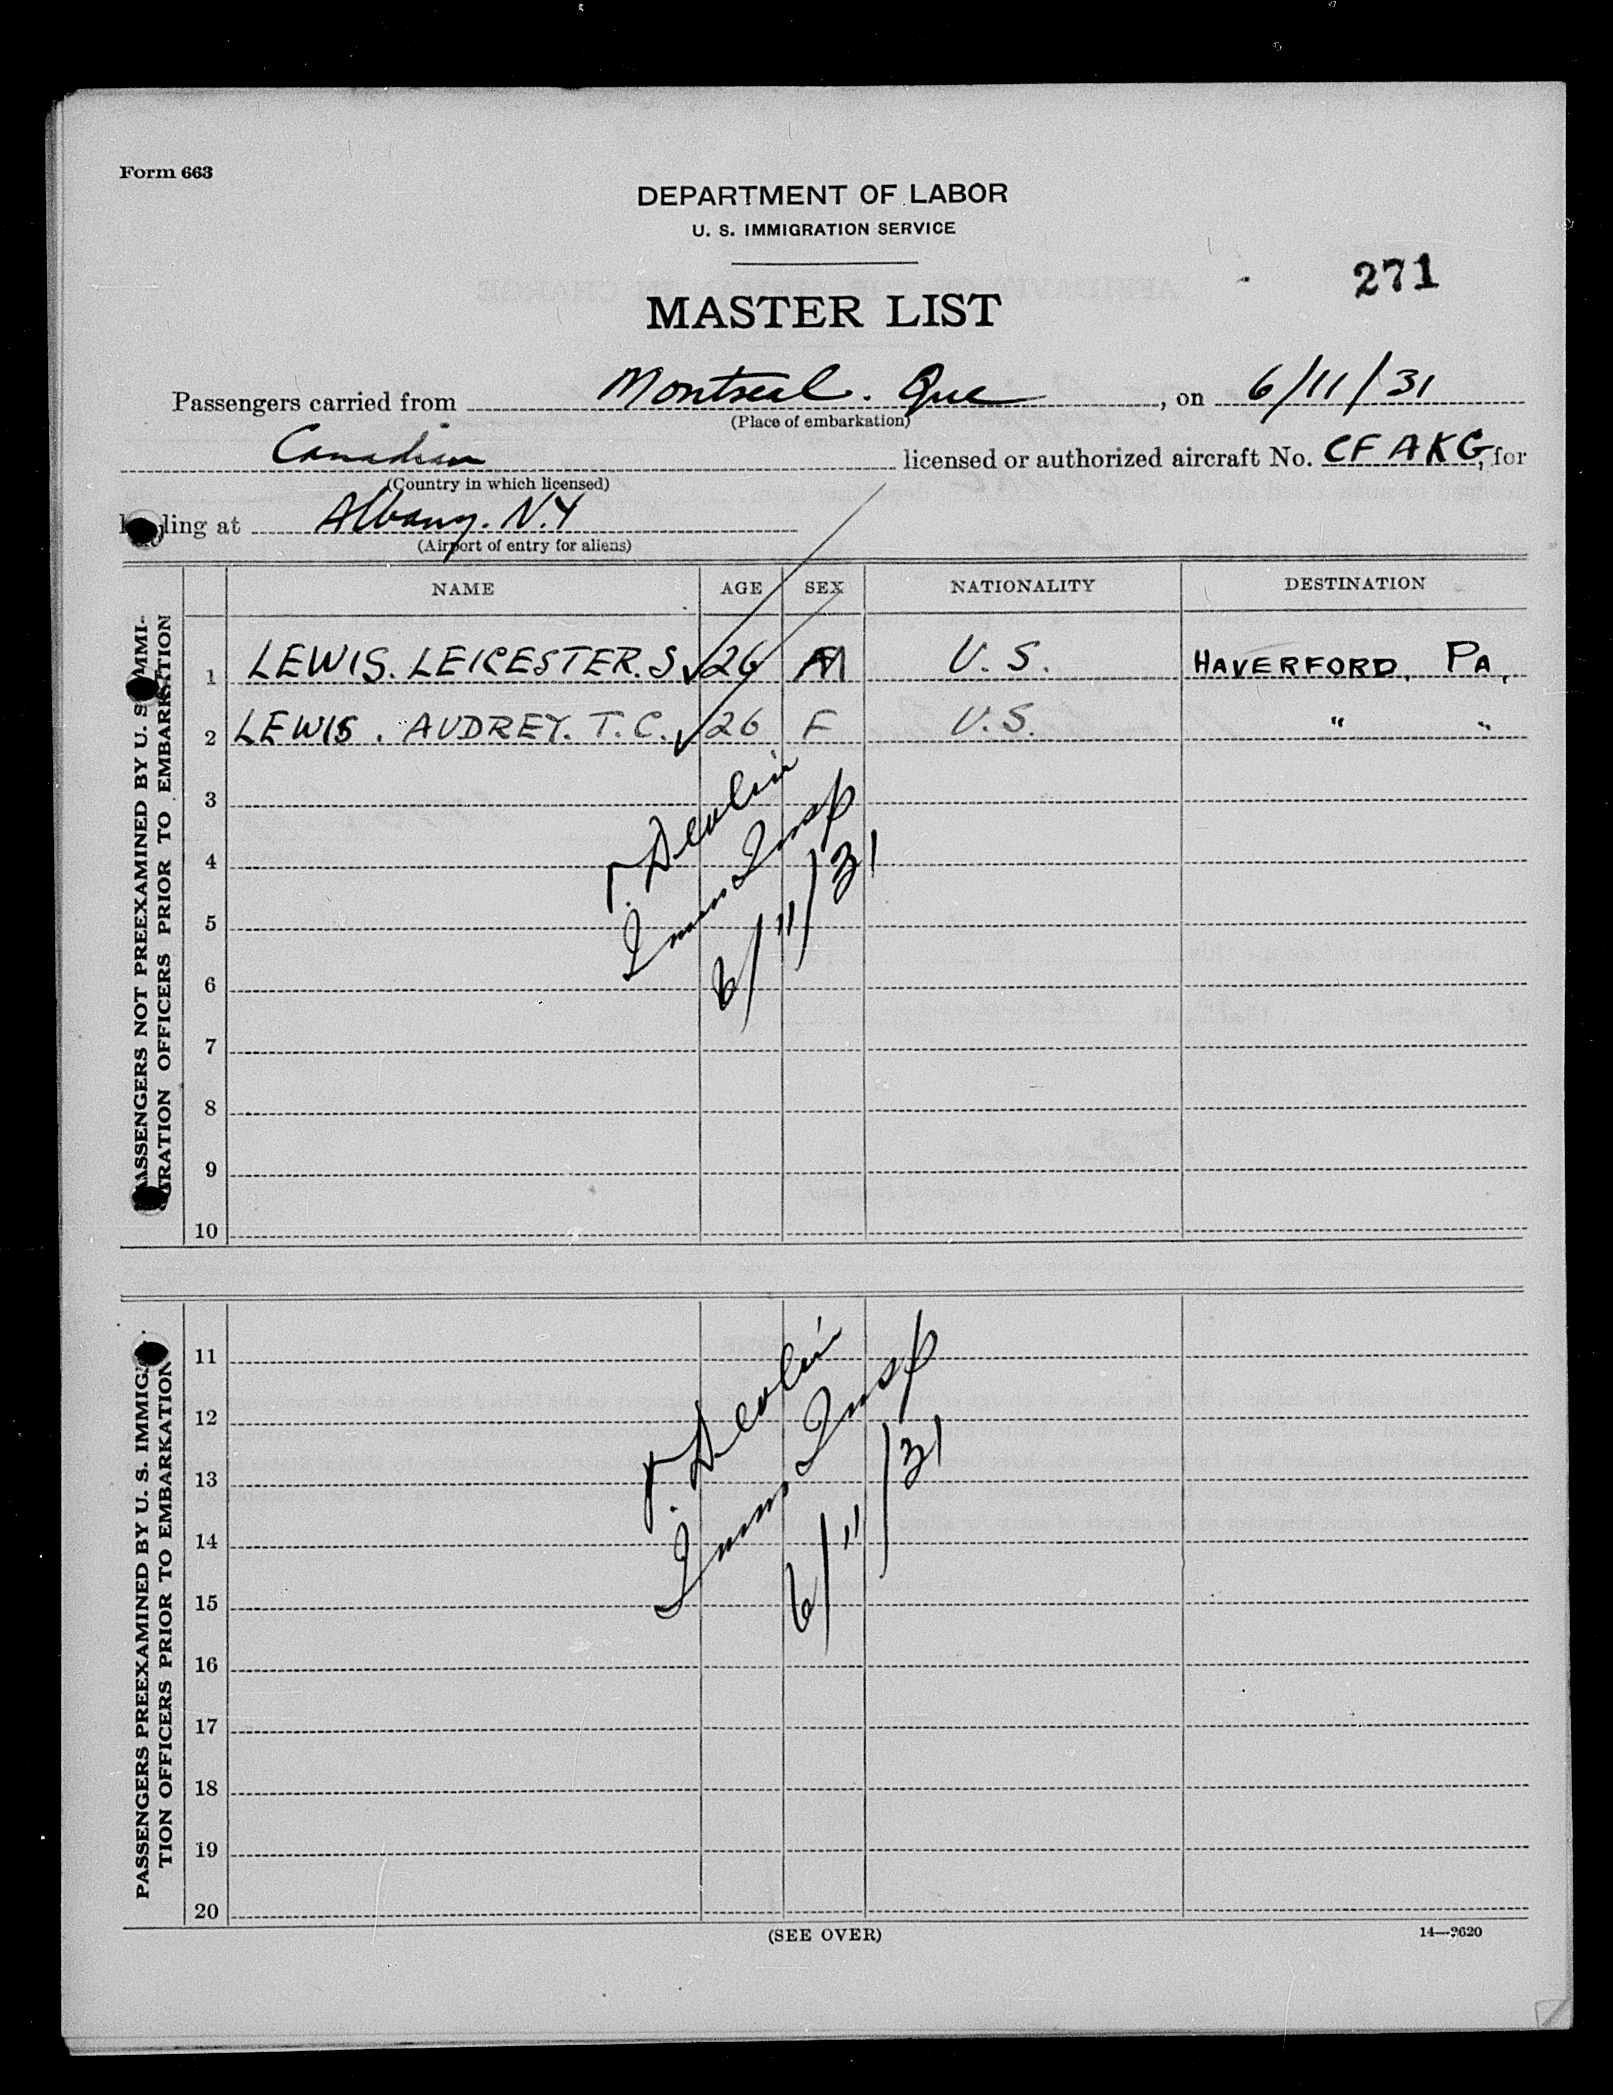 Form 663
DEPARTMENT OF LABOR
U. S. IMMIGRATION SERVICE
271
MASTER LIST
Passengers carried from Montreal. Que, on 6/11/31
(Place of embarkation)
Canadian licensed or authorized aircraft No. CF AKG, for
(Country in which licensed)
ling at Albany. N.Y
(Airport of entry for aliens)
NAME AGE SEX NATIONALITY DESTINATION
PASSENGERS NOT PREEXAMINED BY U. S. IMMI-
GRATION OFFICERS PRIOR TO EMBARKATION
1 LEWIS. LEICESTER. S ✓ 26 M U. S. HAVERFORD, PA,
2 LEWIS. AUDREY. T. C. ✓ 26 F U. S. " "
3
4
5
6
7
8
9
10
Devlin
Imm Insp
6/11/31
PASSENGERS PREEXAMINED BY U. S. IMMIGRA-
TION OFFICERS PRIOR TO EMBARKATION
11
12
13
14
15
16
17
18
19
20
Devlin
Imm Insp
6/11/31
(SEE OVER)
14—2620